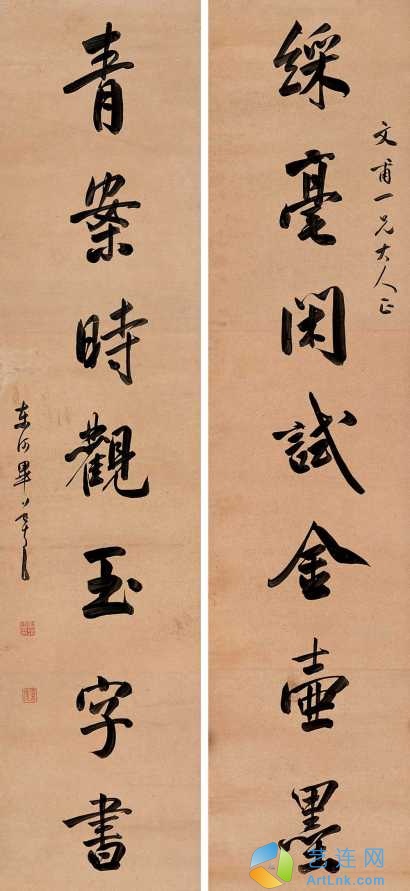 文甫一兄大人正
綵毫閑試金壺墨
青案時觀玉字書
東河畢
艺连网
ArtLnk.com